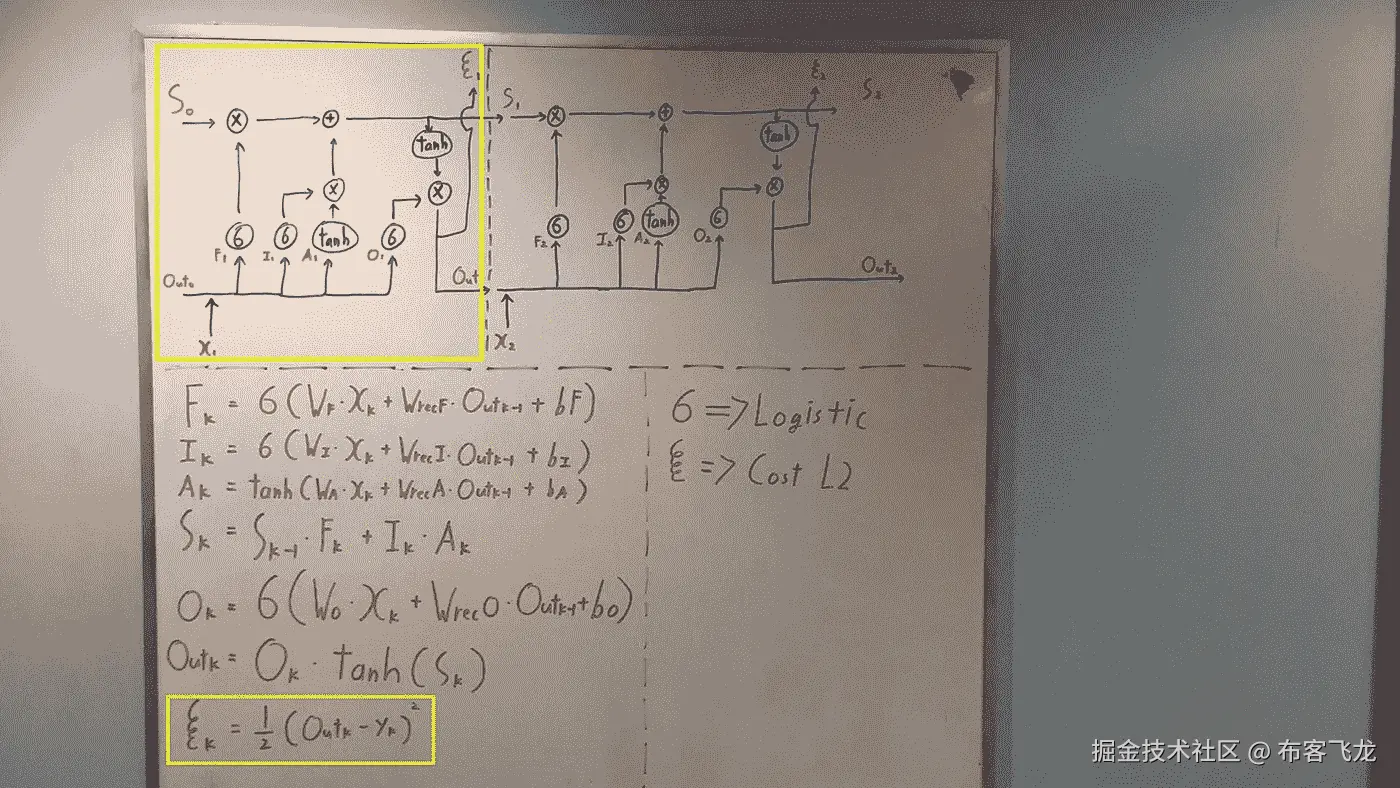 ξ₁
ξ₂
S₀
S₁
S₂
× + tanh × + tanh
× × × ×
6 6 tanh 6
6 6 tanh 6
F₁ I₁ A₁ O₁
F₂ I₂ A₂ O₂
Out₀
Out
Out₂
X₁
X₂
Fₖ = 6(W_F·Xₖ + WrecF·Outₖ₋₁ + bF)
Iₖ = 6(W_I·Xₖ + WrecI·Outₖ₋₁ + b_I)
Aₖ = tanh(W_A·Xₖ + WrecA·Outₖ₋₁ + b_A)
Sₖ = Sₖ₋₁·Fₖ + Iₖ·Aₖ
Oₖ = 6(W_O·Xₖ + WrecO·Outₖ₋₁ + bo)
Outₖ = Oₖ·tanh(Sₖ)
ξₖ = 1/2 (Outₖ - Yₖ)²
6 => Logistic
ξ => Cost L2
掘金技术社区 @ 布客飞龙